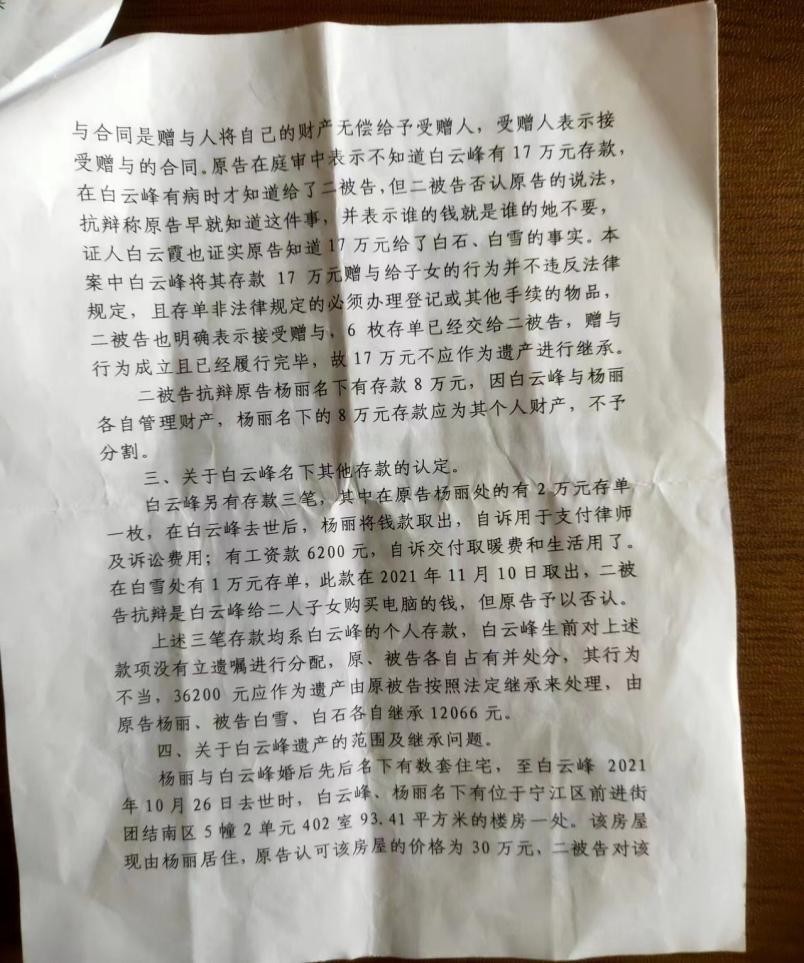 与合同是赠与人将自己的财产无偿给予受赠人，受赠人表示接
受赠与的合同。原告在庭审中表示不知道白云峰有17万元存款，
在白云峰有病时才知道给了二被告，但二被告否认原告的说法，
抗辩称原告早就知道这件事，并表示谁的钱就是谁的她不要，
证人白云霞也证实原告知道17万元给了白石、白雪的事实。本
案中白云峰将其存款 17 万元赠与给子女的行为并不违反法律
规定，且存单非法律规定的必须办理登记或其他手续的物品，
二被告也明确表示接受赠与，6 枚存单已经交给二被告，赠与
行为成立且已经履行完毕，故17万元不应作为遗产进行继承。
二被告抗辩原告杨丽名下有存款8万元，因白云峰与杨丽
各自管理财产，杨丽名下的8万元存款应为其个人财产，不予
分割。
三、关于白云峰名下其他存款的认定。
白云峰另有存款三笔，其中在原告杨丽处的有2万元存单
一枚，在白云峰去世后，杨丽将钱款取出，自诉用于支付律师
及诉讼费用；有工资款6200元，自诉交付取暖费和生活用了。
在白雪处有1万元存单，此款在2021年11月10日取出，二被
告抗辩是白云峰给二人子女购买电脑的钱，但原告予以否认。
上述三笔存款均系白云峰的个人存款，白云峰生前对上述
款项没有立遗嘱进行分配，原、被告各自占有并处分，其行为
不当，36200 元应作为遗产由原被告按照法定继承来处理，由
原告杨丽、被告白雪、白石各自继承12066元。
四、关于白云峰遗产的范围及继承问题。
杨丽与白云峰婚后先后名下有数套住宅，至白云峰 2021
年10月26日去世时，白云峰、杨丽名下有位于宁江区前进街
团结南区5幢2单元402室93.41平方米的楼房一处。该房屋
现由杨丽居住，原告认可该房屋的价格为30万元，二被告对该